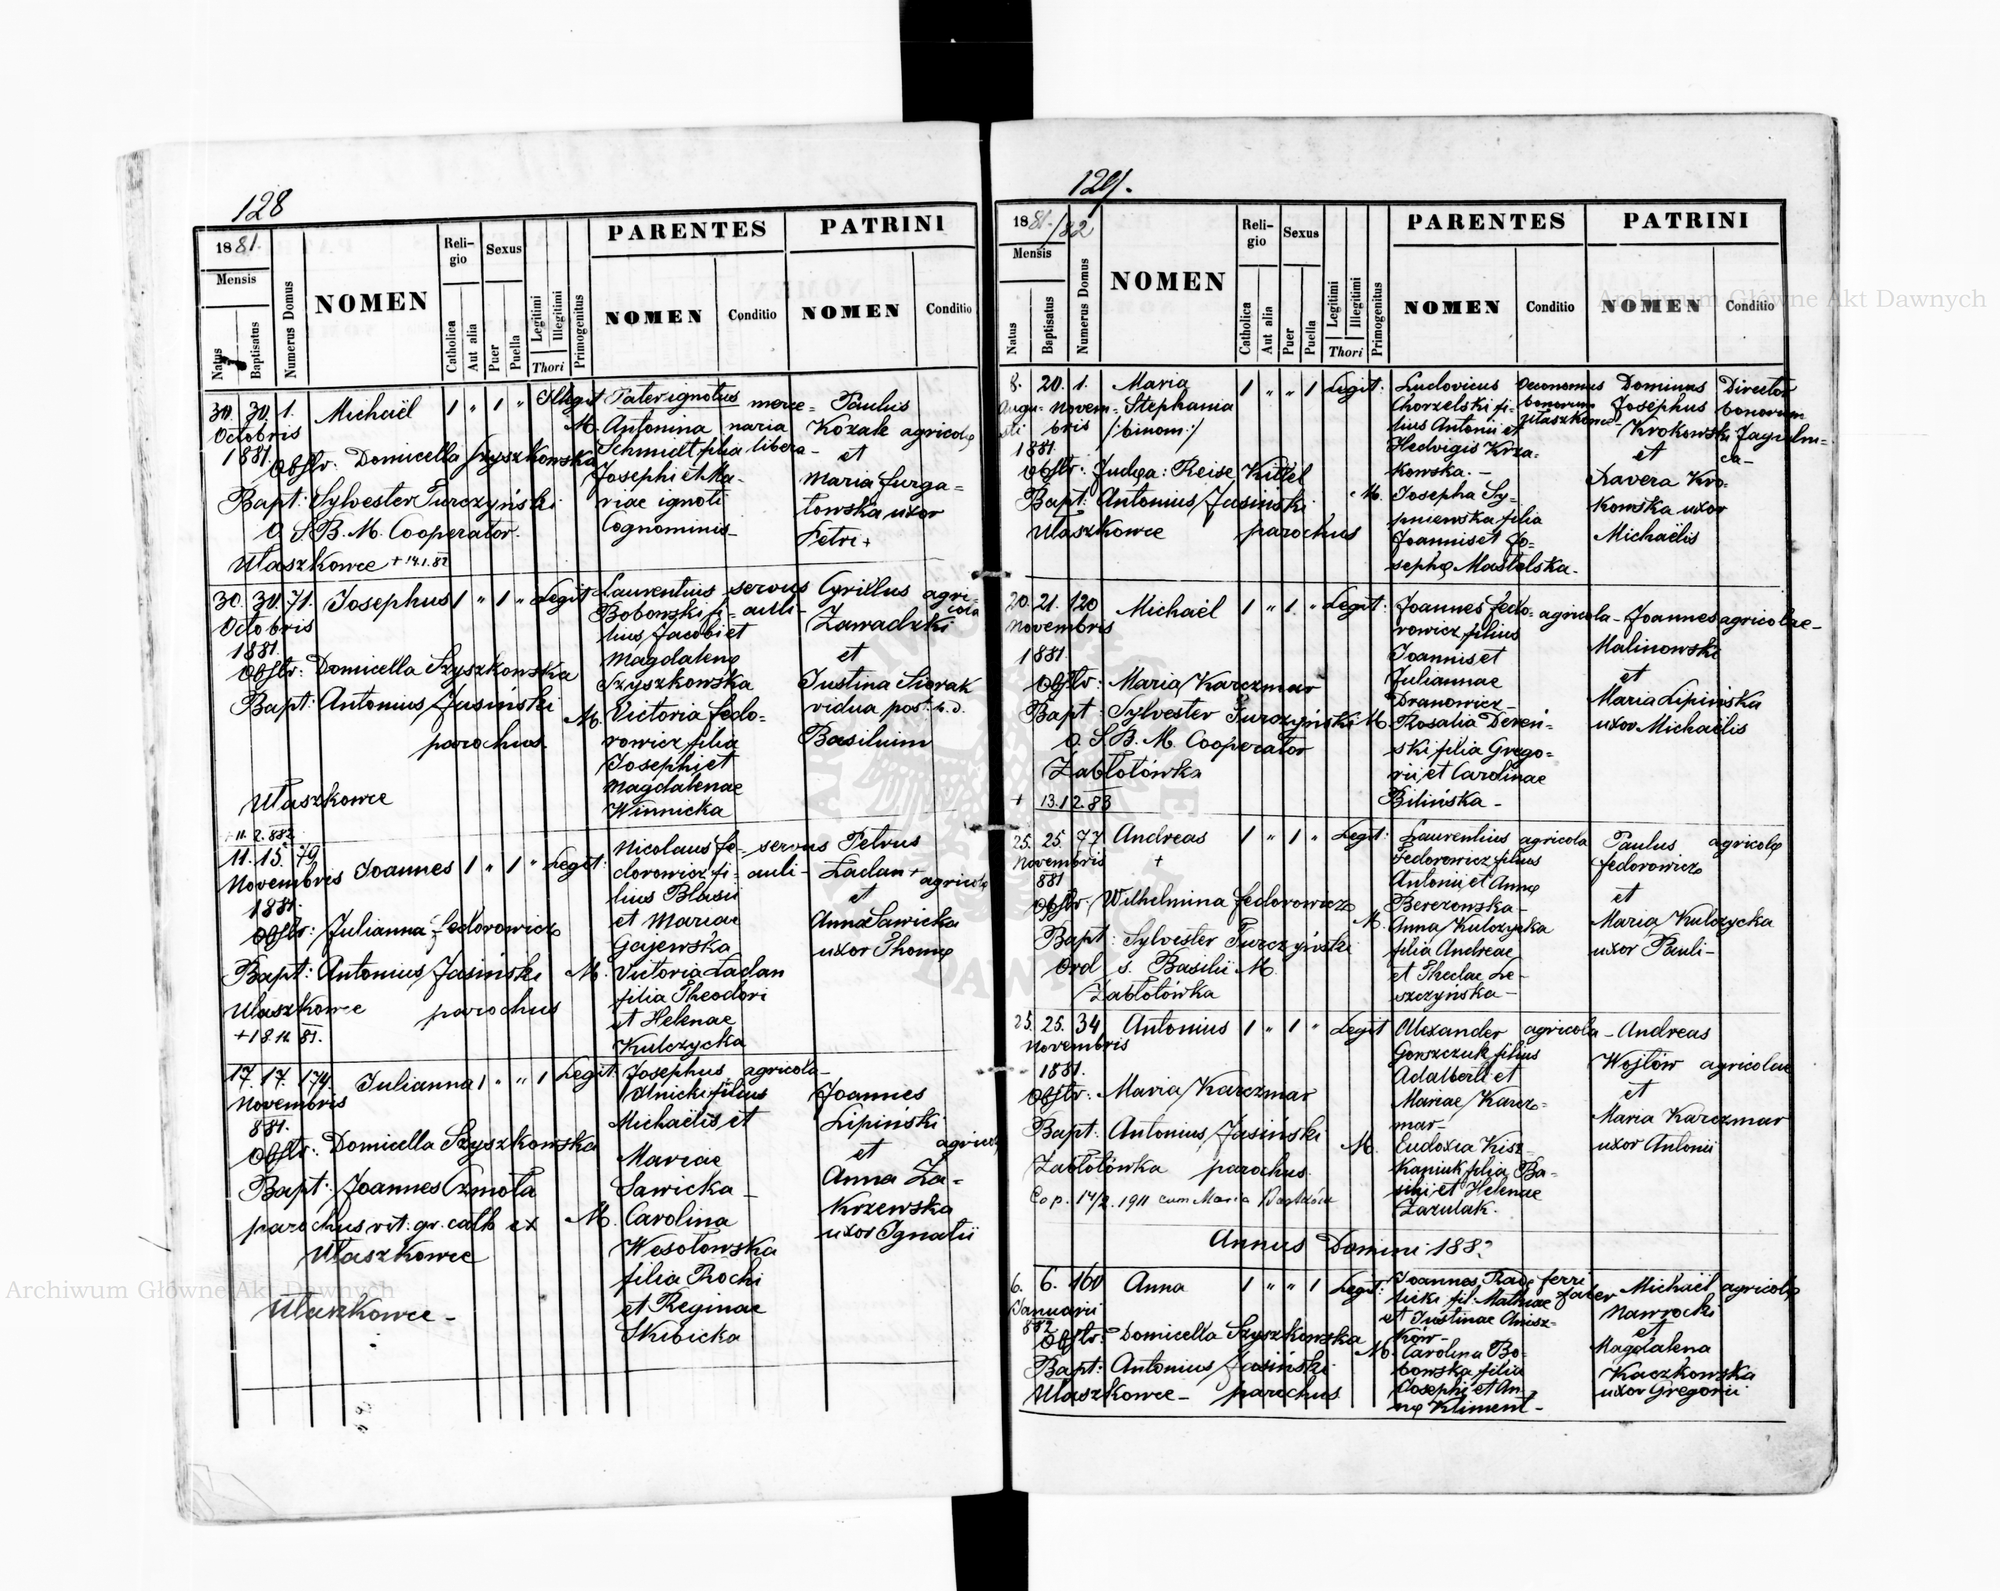 128
1881.
Mensis
Natus
Baptisatus
Numerus Domus
NOMEN
Reli-
gio
Catholica
Aut alia
Sexus
Puer
Puella
Legitimi
Illegitimi
Thori
Primogenitus
PARENTES
NOMEN
Conditio
PATRINI
NOMEN
Conditio
30. 30. 1. Michaël 1 " 1 " Illegit Pater ignotus merce- Paulus
Octobris M. Antonina naria Kozak agricolę
1881. Obstr: Domicella Szyszkowska Schmidt filia libera- et
Josephi et Ma- Maria Furga=
Bapt: Sylvester Turczyński riae ignoti towska uxor
O. S. B. M. Cooperator. Cognominis- Petri +
Ułaszkowce + 14.1.82
30. 30. 71. Josephus 1 " 1 " Legit Laurentius servus Cyrillus agri-
Octobris Bobowski fi- auli- Zawadzki cola
1881. lius Jacobi et et
Obstr: Domicella Szyszkowska Magdalenę Justina Siorak
Szyszkowska vidua post
Bapt: Antonius Jasiński M. Victoria Fedo- Basilium
parochus. rowicz filia
Josephi et
Magdalenae
Ułaszkowce Winnicka
11. 2. 882
11. 15. 79 Joannes 1 " 1 " Legit: Nicolaus Fe- servus Petrus
Novembris dorowicz fi- auli- Ladan + agricolę
1881. lius Blasii et
Obstr: Julianna Fedorowicz et Mariae Anna Sawicka
Gajewska uxor Thomę
Bapt: Antonius Jasiński M. Victoria Ladan
Ułaszkowce parochus filia Theodori
et Helenae
+ 18. 81. Kulczycka
17. 17. 174. Julianna 1 " " 1 Legit: Josephus agricola-
Novembris Ilnicki filius Joannes
881. Michaëlis et Lipiński
Obstr: Domicella Szyszkowska et agricolę
Mariae
Bapt: Joannes Czmoła Sawicka- Anna Za-
parochus rit. gr. cath ex M. Carolina krzewska
Ułaszkowce Wesołowska uxor Ignatii
filia Rochi
Ułaszkowce- et Reginae
Skibicka
129.
1881./82
Mensis
Natus
Baptisatus
Numerus Domus
NOMEN
Reli-
gio
Catholica
Aut alia
Sexus
Puer
Puella
Legitimi
Illegitimi
Thori
Primogenitus
PARENTES
NOMEN
Conditio
PATRINI
NOMEN
Conditio
8. 20. 1. Maria 1 " " 1 Legit: Ludovicus Oeconomus Dominus Director
Augu- Novem- Stephania Chorzelski fi- bonorum Josephus bonorum
sti bris /:binom:/ lius Antonii et Ułaszkowce- Krokowski Jagielni-
1881. Hedvigis Krza- et ca-
Obstr: Judea: Reise Kittel kowska.- Xavera Kro-
Bapt: Antonius Jasiński M. Josepha Sy- kowska uxor
Ułaszkowce parochus pniewska filia Michaëlis
Joannis et Jo-
sephę Mastelska.
20. 21. 120 Michaël 1 " 1 " Legit: Joannes Fedo- agricola- Joannes agricolae-
Novembris rowicz filius Malinowski
1881. Joannis et et
Obstr: Maria Karczmar Juliannae Maria Lipińska
Dranowicz- uxor Michaëlis
Bapt: Sylvester Turczyński M. Rosalia Dereń-
O. S. B. M. Cooperator ski filia Grego-
Zabłotówka rii et Carolinae
+ 13.12.83 Bilińska-
25. 25. 77 Andreas 1 " 1 " Legit: Laurentius agricola Paulus agricolę
Novembris + Fedorowicz filius Fedorowicz
881 Antonii et Annę et
Obstr: Wilhelmina Fedorowicz Berezowska- Maria Kulczycka
Bapt: Sylvester Turczyński M. Anna Kulczycka uxor Pauli-
Ord s. Basilii M. filia Andreae
Zabłotówka et Theclae Le-
szczyńska-
25. 25. 34 Antonius 1 " 1 " Legit Alexander agricola- Andreas
Novembris Gonszczuk filius Wojtów agricolae
1881. Adalberti et et
Obstr: Maria Karczmar Mariae Karcz- Maria Karczmar
mar- uxor Antonii
Bapt: Antonius Jasiński M. Eudoxia Kisz-
Zabłotówka parochus. kaniuk filia Ba-
Cop. 14/2. 1911 cum Maria silii et Helenae
Zazulak.
Annus Domini 188
6. 6. 160 Anna 1 " " 1 Legit: Joannes Rade- ferri Michaël agricolę
Januarii licki fil: Mathiae faber Nawrocki
882 et Justinae Anisz- et
Obstr: Domicella Szyszkowska ków- Magdalena
Bapt: Antonius Jasiński M. Carolina Bo- Kaczkowska
Ułaszkowce- parochus bowska filia uxor Gregorii
Josephi et An-
nę Kliment-
Archiwum Główne Akt Dawnych
Archiwum Główne Akt Dawnych